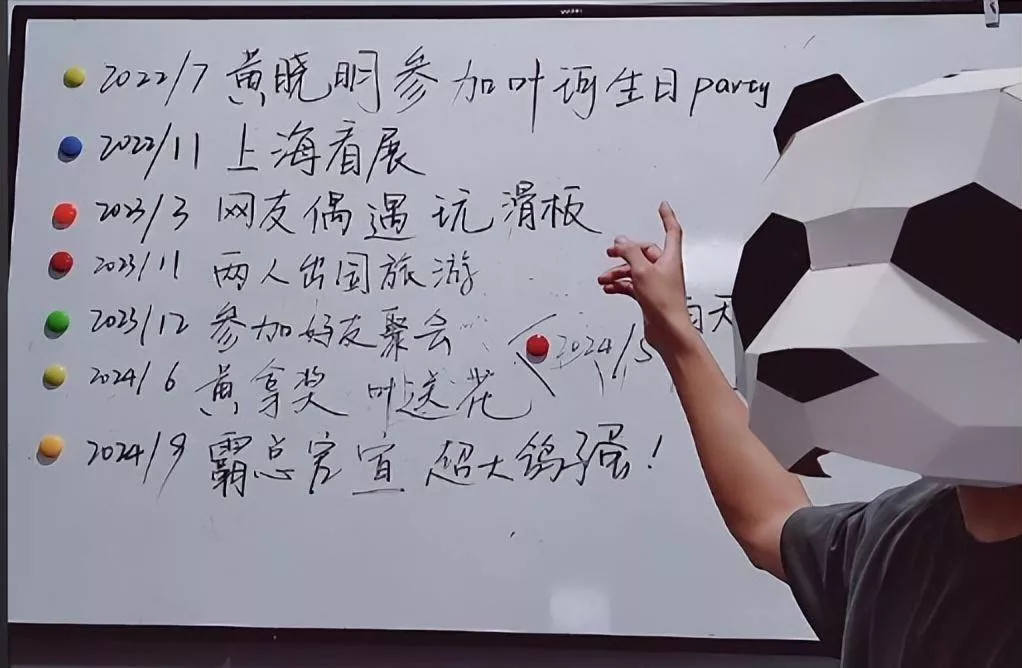 2022/7 黄晓明参加叶珂生日party
2022/11 上海看展
2023/3 网友偶遇玩滑板
2023/11 两人出国旅游
2023/12 参加好友聚会
2024/5 雨天
2024/6 黄拿奖 叶送花
2024/9 霸总官宣 超大鸽子蛋!